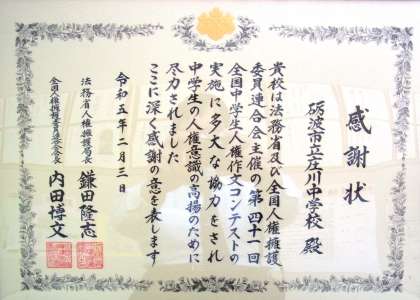 感謝状
砺波市立庄川中学校 殿
貴校は法務省及び全国人権擁護
委員連合会主催の第四十一回
全国中学生人権作文コンテストの
実施に多大な協力をされ
中学生の人権意識の高揚のために
尽力されました
ここに深く感謝の意を表します
令和五年二月三日
法務省人権擁護局長 鎌田隆志
全国人権擁護委員連合会会長 内田博文